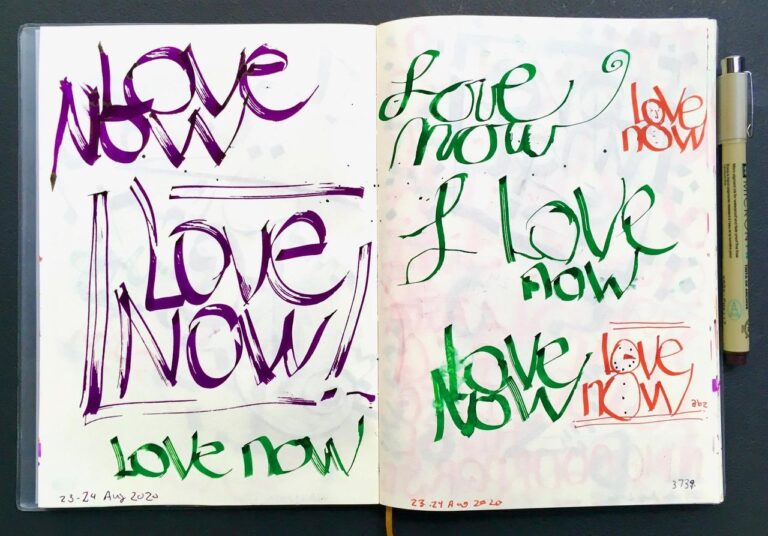 Love
Now
Love
Now!
Love now
23-24 Aug 2020
Love
now
love
now
L Love
now
Love
Now
love
now
abz
3739
23-24 Aug 2020
MICRON